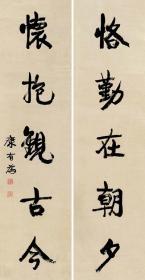 恪勤在朝夕
懷抱觀古今
康有為